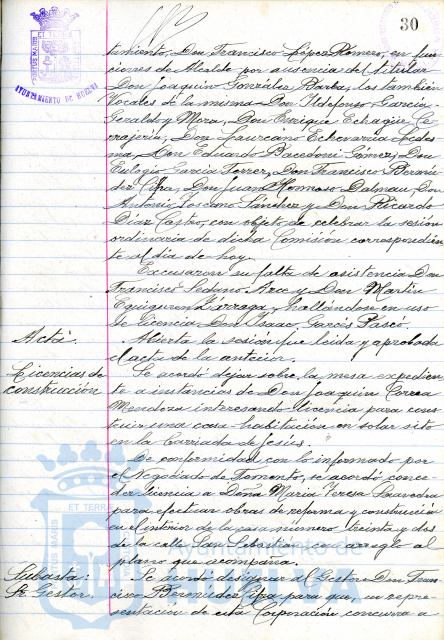 30
AYUNTAMIENTO DE HUELVA
tamiento, Don Francisco López Romero, en fun
ciones de Alcalde por ausencia del titular
Don Joaquín González Barba, los también
Vocales de la misma Don Ildefonso García
Geraldo y Mora, Don Enrique Echagüe Ca
rrajería, Don Laureano Echevarría Ledes
ma, Don Eduardo Bacedoni Gómez, Don
Eulogio García Ferrer, Don Francisco Bermú
dez Cifra, Don Juan Hermoso Dalmau, Don
Antonio Toscano Sánchez y Don Ricardo
Díaz Castro, con objeto de celebrar la sesión
ordinaria de dicha Comisión correspondien
te al día de hoy.
Excusaron su falta de asistencia Don
Francisco Sedano Arce y Don Martín
Eguiguren Lárraga, hallándose en uso
de licencia Don Isaac Garcés Pascó.
Acta. Abierta la sesión fue leída y aprobada
el acta de la anterior.
Licencias de Se acordó dejar sobre la mesa expedien
construcción te a instancias de Don Joaquín Correa
Mendoza interesando licencia para cons
truir una casa-habitación en solar sito
en la barriada de Jesús.
De conformidad con lo informado por
el Negociado de Fomento, se acordó conce
der licencia a Doña María Teresa Saavedra
para efectuar obras de reforma y construcción
en el interior de la casa número treinta y dos
de la calle San Sebastián con arreglo al
plano que acompaña.
Subasta: Se acordó designar al Gestor Don Fran
Sr. Gestor. cisco Bermúdez Cifra para que, en repre
sentación de esta Corporación concurra a
Ayuntamiento de
HUELVA